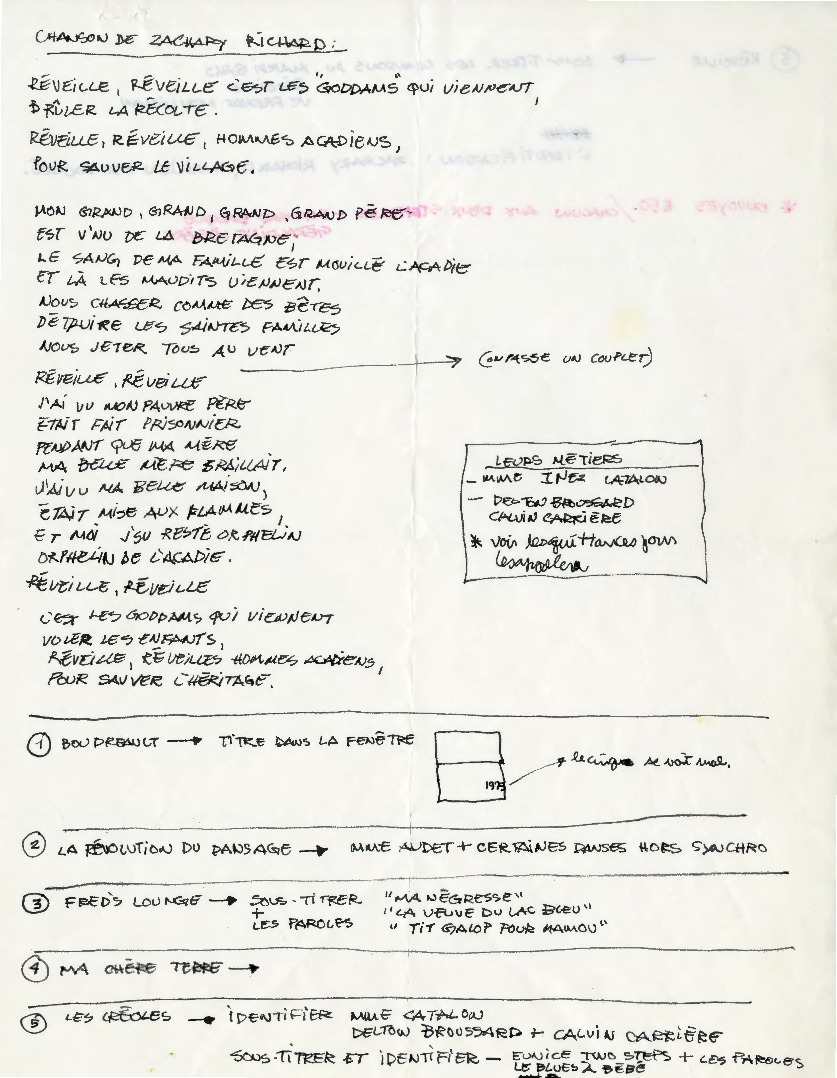 CHANSON DE ZACHARY RICHARD:
RÉVEILLE, RÉVEILLE C'EST LES "GODDAMS" QUI VIENNENT,
BRÛLER LA RÉCOLTE.
RÉVEILLE, RÉVEILLE, HOMMES ACADIENS,
POUR SAUVER LE VILLAGE.
MON GRAND, GRAND, GRAND, GRAND PÈRE
EST V'NU DE LA BRETAGNE,
LE SANG DE MA FAMILLE EST MOUILLÉ L'ACADIE
ET LÀ LES MAUDITS VIENNENT.
NOUS CHASSER COMME DES BÊTES
DÉTRUIRE LES SAINTES FAMILLES
NOUS JETER TOUS AU VENT
(ON PASSE UN COUPLET)
RÉVEILLE, RÉVEILLE
J'AI VU MON PAUVRE PÈRE
ÉTAIT FAIT PRISONNIER
PENDANT QUE MA MÈRE
MA BELLE MÈRE BRAILLAIT.
J'AI VU MA BELLE MAISON,
ÉTAIT MISE AUX FLAMMES,
ET MOI J'SU RESTÉ ORPHELIN
ORPHELIN DE L'ACADIE.
RÉVEILLE, RÉVEILLE
C'EST LES GODDAMS QUI VIENNENT
VOLER LES ENFANTS,
RÉVEILLE, RÉVEILLES HOMMES ACADIENS,
POUR SAUVER L'HÉRITAGE.
LEURS MÉTIERS
- MME INEZ CATALON
- DELTON BROUSSARD
CALVIN CARRIÈRE
* voir les quittances pour
les appeler
1 BOUDREAULT → TITRE DANS LA FENÊTRE
1975
le cinq se voit mal.
2 LA RÉVOLUTION DU DANSAGE → MME AUDET + CERTAINES DANSES HORS SYNCHRO
3 FRED'S LOUNGE → SOUS-TITRER "MA NÉGRESSE"
+ "LA VEUVE DU LAC BLEU"
LES PAROLES "TIT GALOP POUR MAMOU"
4 MA CHÈRE TERRE →
5 LES CRÉOLES → IDENTIFIER MME CATALON
DELTON BROUSSARD + CALVIN CARRIÈRE
SOUS-TITRER ET IDENTIFIER - EUNICE TWO STEPS + LES PAROLES
LE BLUES À BÉBÉ